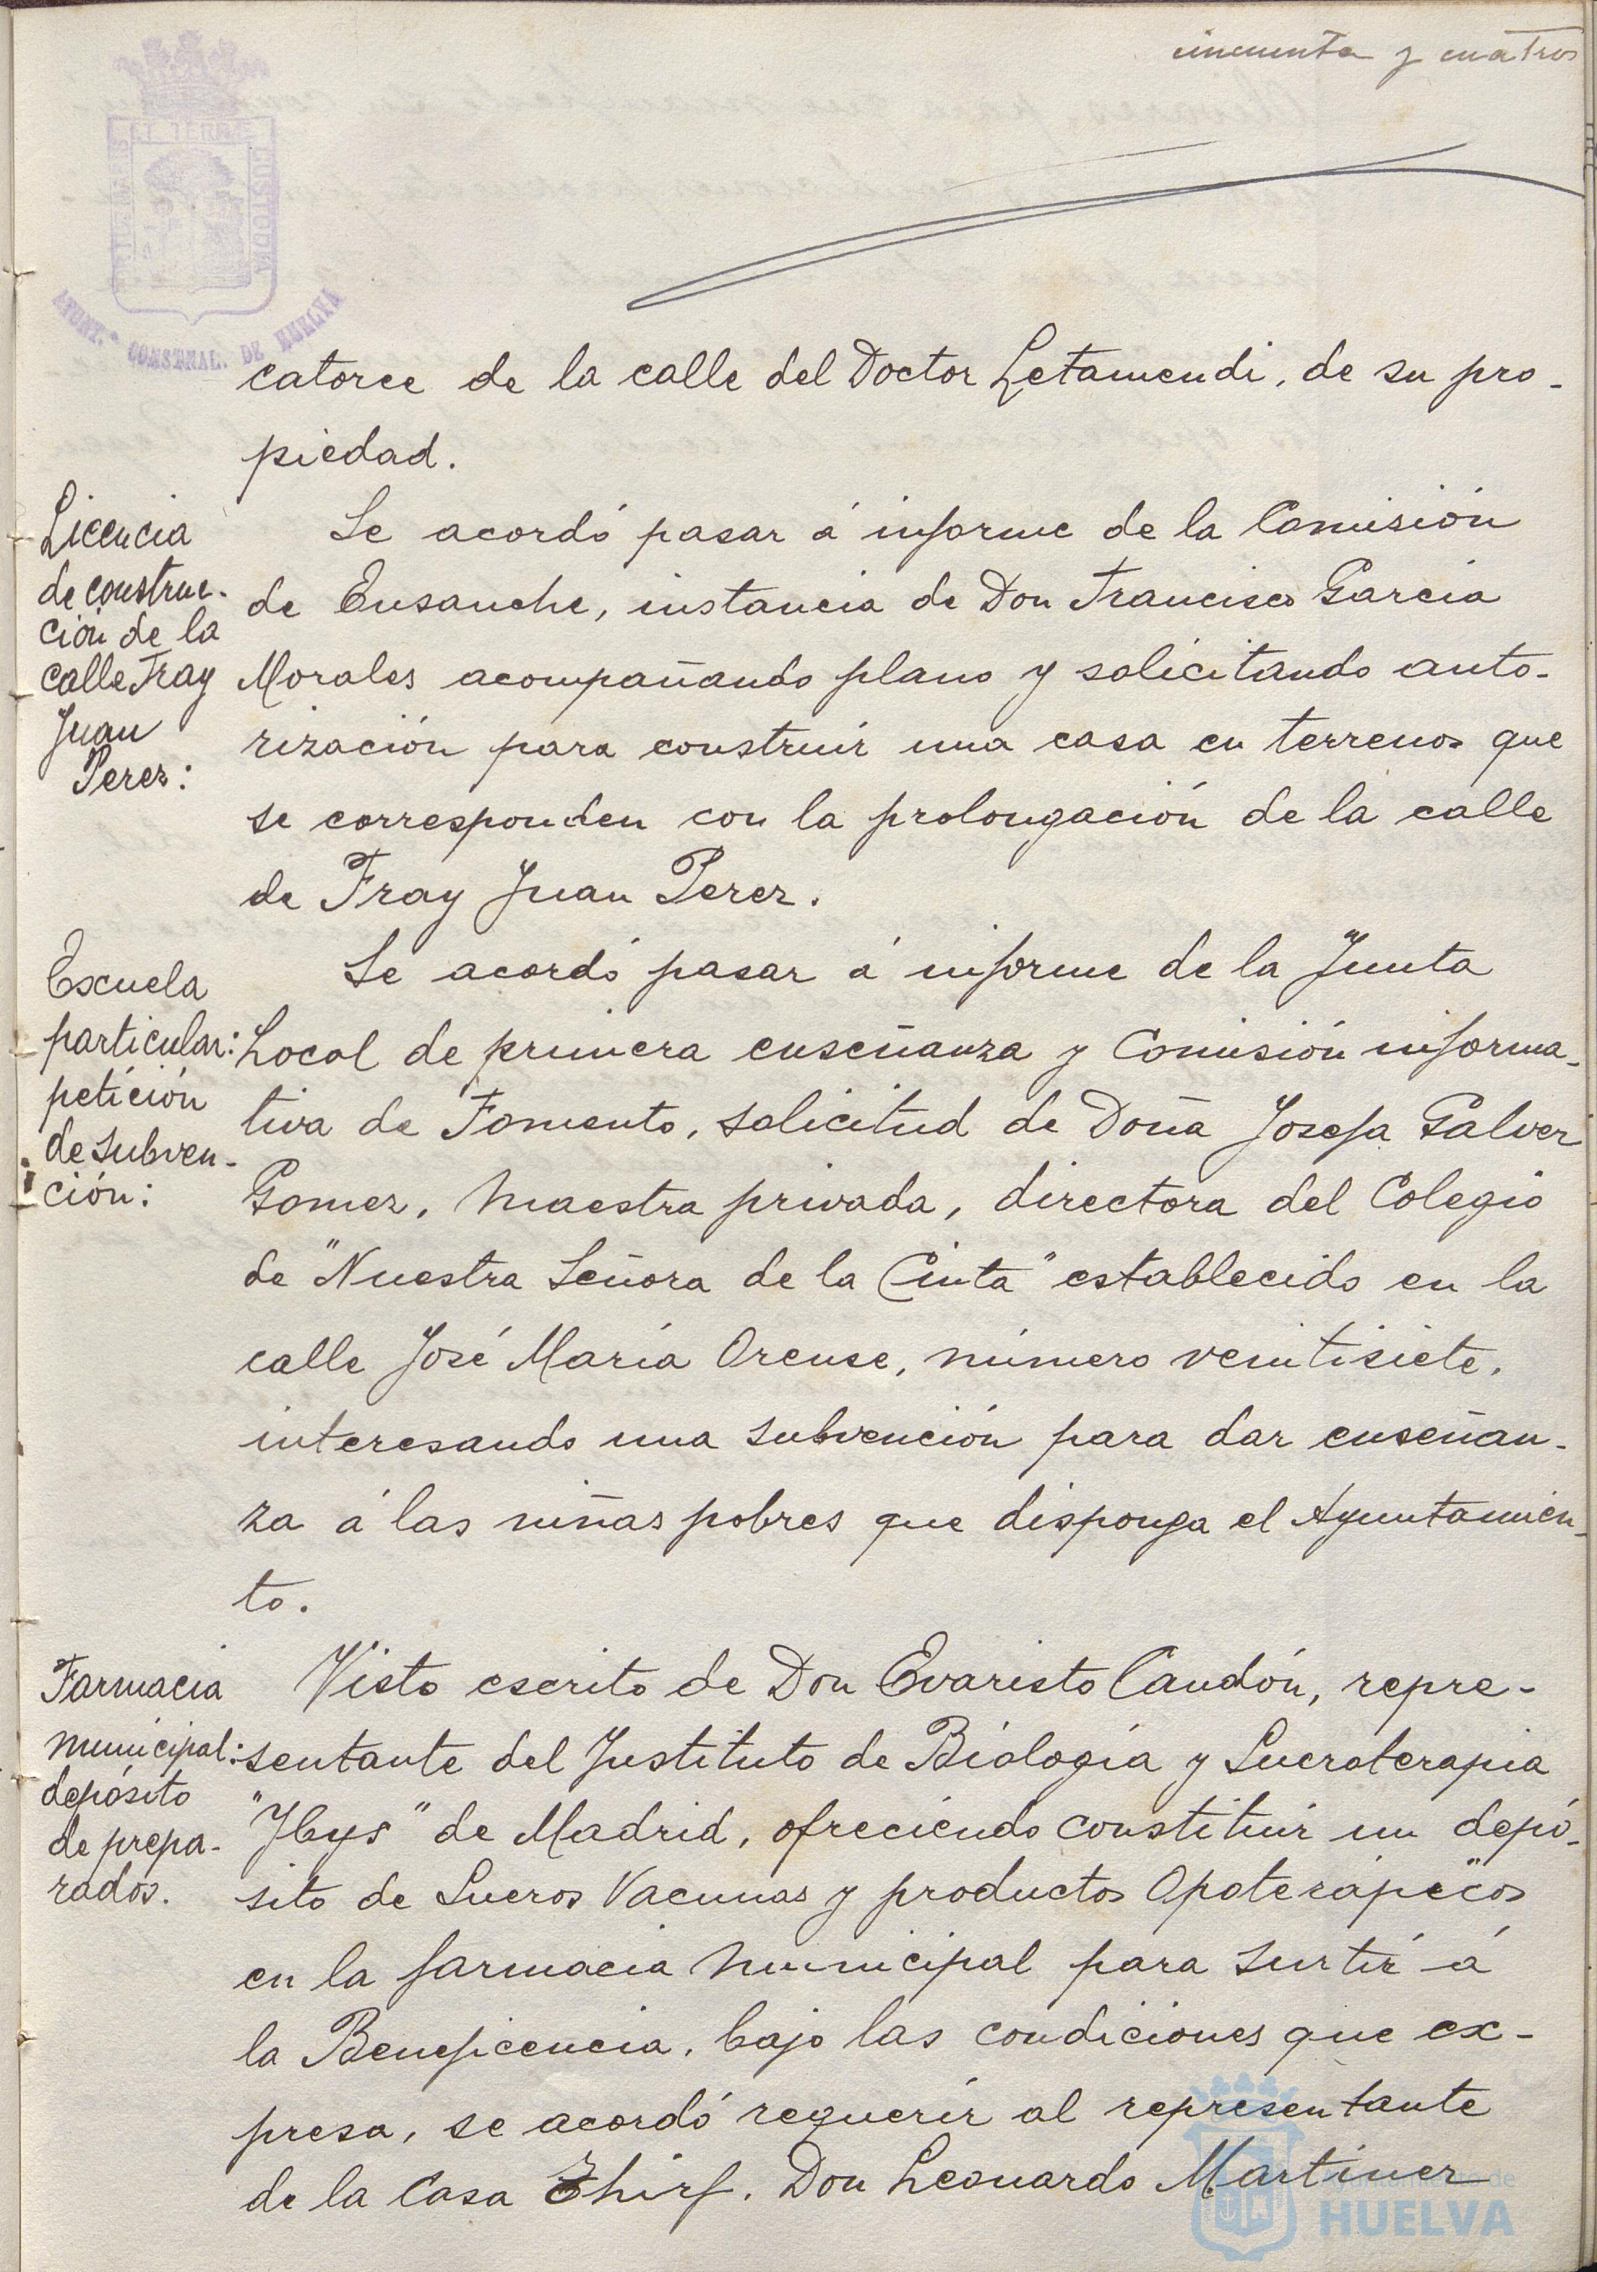 cincuenta y cuatro
PORTUS MARIS ET TERRÆ CUSTODIA
AYUNT.º CONSTNAL. DE HUELVA
catorce de la calle del Doctor Letamendi, de su pro-
piedad.
Licencia
de construc-
ción de la
calle Fray
Juan
Perez:
Se acordó pasar á informe de la Comisión
de Ensanche, instancia de Don Francisco Garcia
Morales acompañando plano y solicitando auto-
rización para construir una casa en terrenos que
se corresponden con la prolongación de la calle
de Fray Juan Perez.
Escuela
particular:
petición
de subven-
ción:
Se acordó pasar á informe de la Junta
Local de primera enseñanza y Comisión informa-
tiva de Fomento, solicitud de Doña Josefa Galvez
Gomez, maestra privada, directora del Colegio
de "Nuestra Señora de la Cinta" establecido en la
calle José María Orense, número veintisiete,
interesando una subvención para dar enseñan-
za á las niñas pobres que disponga el Ayuntamien-
to.
Farmacia
municipal:
depósito
de prepa-
rados.
Visto escrito de Don Evaristo Candón, repre-
sentante del Instituto de Biología y Sueroterapia
"Ibys" de Madrid, ofreciendo constituir un depó-
sito de Sueros Vacunas y productos Opoterápicos
en la farmacia municipal para surtir á
la Beneficencia, bajo las condiciones que ex-
presa, se acordó requerir al representante
de la Casa Thirf. Don Leonardo Martinez
Ayuntamiento de
HUELVA